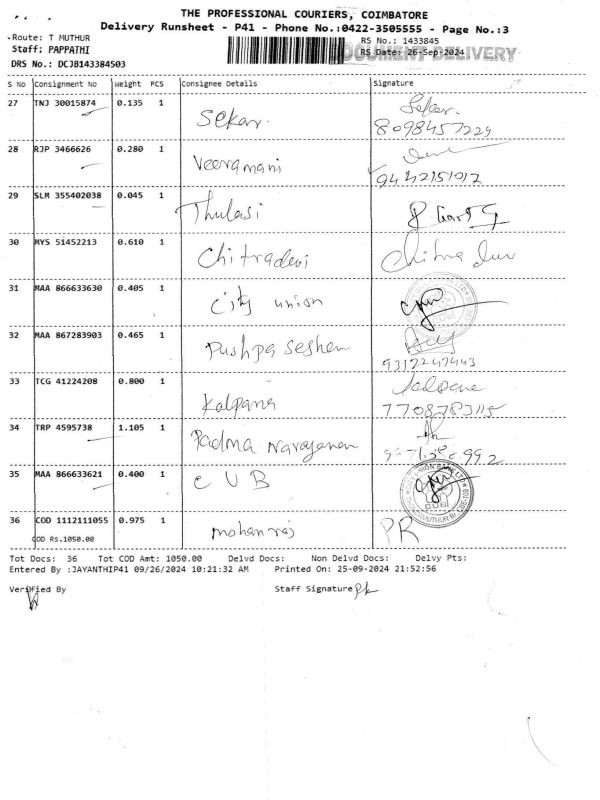 THE PROFESSIONAL COURIERS, COIMBATORE
Delivery Runsheet - P41 - Phone No.:0422-3505555 - Page No.:3
Route: T MUTHUR
RS No.: 1433845
DOCUMENT DELIVERY
Staff: PAPPATHI
RS Date: 26-Sep-2024
DRS No.: DCJB143384503
S No Consignment No Weight PCS Consignee Details Signature
27 TNJ 30015874 0.135 1 Sekar. Sekar.
8098457229
28 RJP 3466626 0.280 1 Veeramani
9442151012
29 SLM 355402038 0.045 1 Thulasi
30 MYS 51452213 0.610 1 Chitradevi Chitra
31 MAA 866633630 0.405 1 City union
32 MAA 867283903 0.465 1 Pushpa Seshen
9312247443
33 TCG 41224208 0.800 1 Kalpana
7708783115
34 TRP 4595738 1.105 1 Padma Narayanan
35 MAA 866633621 0.400 1 C U B
CUBI
36 COD 1112111055 0.975 1 mohanraj PR
COD Rs.1050.00
Tot Docs: 36 Tot COD Amt: 1050.00 Delvd Docs: Non Delvd Docs: Delvy Pts:
Entered By :JAYANTHIP41 09/26/2024 10:21:32 AM Printed On: 25-09-2024 21:52:56
Verified By Staff Signature